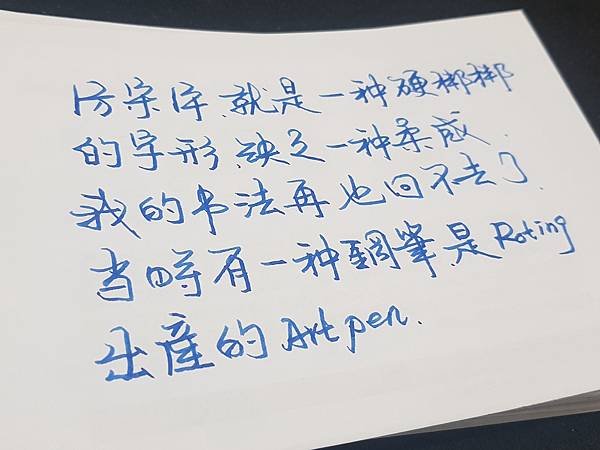 仿宋字.就是一种硬梆梆
的字形.缺乏一种柔感.
我的书法再也回不去了.
当時有一种鋼筆.是Roting
出產的Art pen.